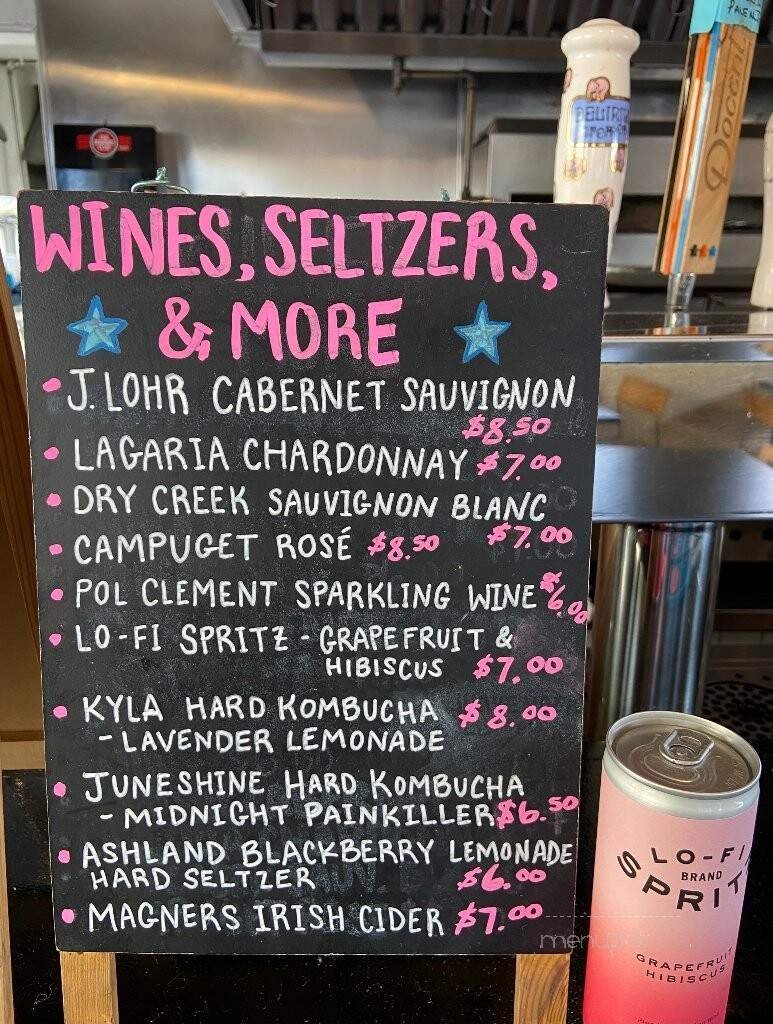 PALE N
Docent
DELIRIUM
TREMENS
WINES, SELTZERS,
& MORE
• J. LOHR CABERNET SAUVIGNON
$8.50
• LAGARIA CHARDONNAY $7.00
• DRY CREEK SAUVIGNON BLANC
$7.00
• CAMPUGET ROSÉ $8.50
• POL CLEMENT SPARKLING WINE $6.00
• LO-FI SPRITZ - GRAPEFRUIT &
HIBISCUS $7.00
• KYLA HARD KOMBUCHA $8.00
- LAVENDER LEMONADE
• JUNESHINE HARD KOMBUCHA
- MIDNIGHT PAINKILLER $6.50
• ASHLAND BLACKBERRY LEMONADE
HARD SELTZER $6.00
• MAGNERS IRISH CIDER $7.00
LO-FI
BRAND
SPRIT
GRAPEFRUIT
HIBISCUS